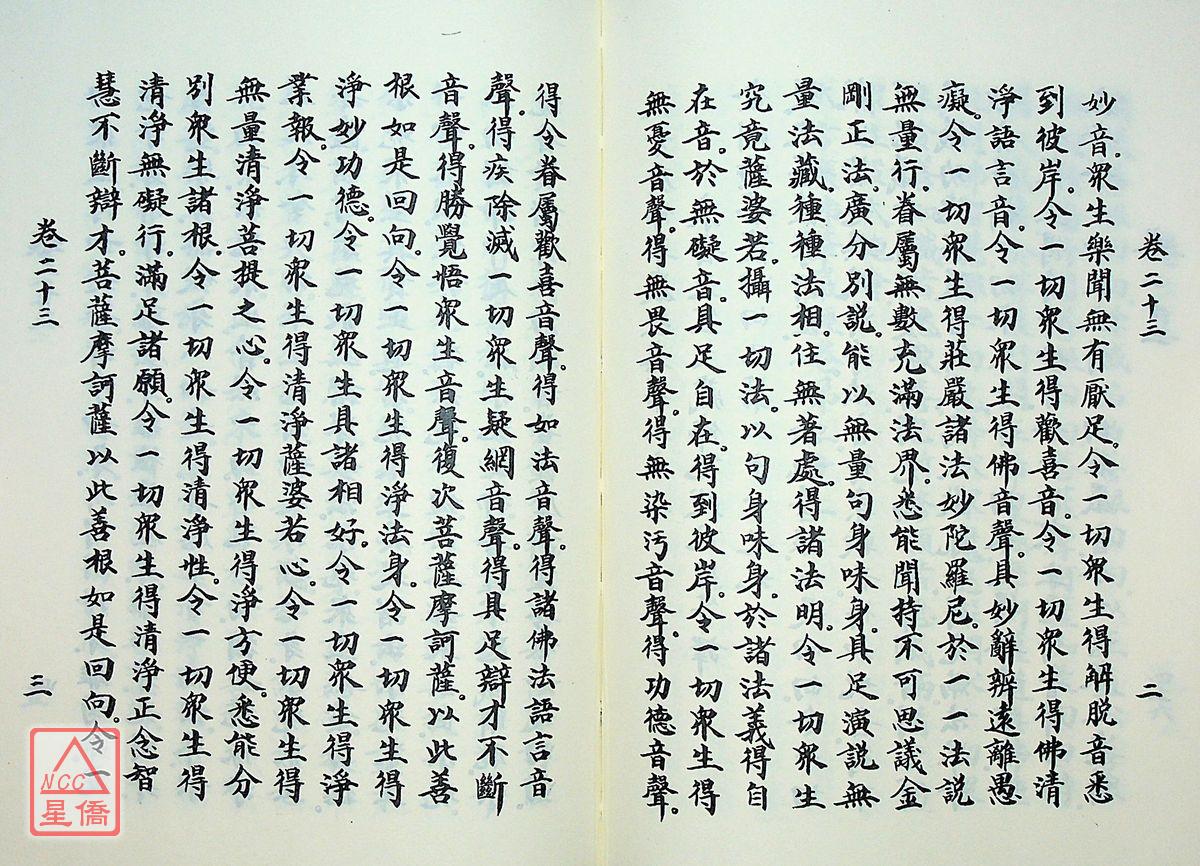 卷二十三
二
妙音。眾生樂聞無有厭足。令一切眾生得解脫音悉
到彼岸。令一切眾生得歡喜音。令一切眾生得佛清
淨語言音。令一切眾生得佛音聲。具妙辭辨遠離愚
癡。令一切眾生得莊嚴諸法妙陀羅尼。於一一法說
無量行。眷屬無數充滿法界。悉能聞持不可思議金
剛正法。廣分別說。能以無量句身味身。具足演說無
量法藏。種種法相。住無著處。得諸法明。令一切眾生
究竟薩婆若。攝一切法。以句身味身。於諸法義得自
在音。於無礙音。具足自在。得到彼岸。令一切眾生得
無憂音聲。得無畏音聲。得無染污音聲。得功德音聲。
得令眷屬歡喜音聲。得如法音聲。得諸佛法語言音
聲。得疾除滅一切眾生疑網音聲。得具足辯才不斷
音聲。得勝覺悟眾生音聲。復次菩薩摩訶薩。以此善
根如是回向。令一切眾生得淨法身。令一切眾生得
淨妙功德。令一切眾生具諸相好。令一切眾生得淨
業報。令一切眾生得清淨薩婆若心。令一切眾生得
無量清淨菩提之心。令一切眾生得淨方便。悉能分
別眾生諸根。令一切眾生得清淨性。令一切眾生得
清淨無礙行。滿足諸願。令一切眾生得清淨正念智
慧不斷辯才。菩薩摩訶薩以此善根如是回向。令一
卷二十三
三
NCC
星僑